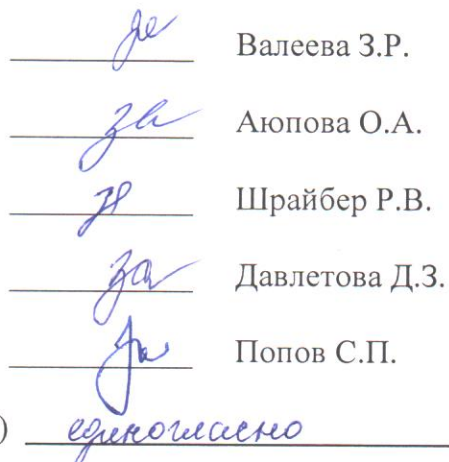 за Валеева З.Р.
за Аюпова О.А.
за Шрайбер Р.В.
за Давлетова Д.З.
за Попов С.П.
) единогласно